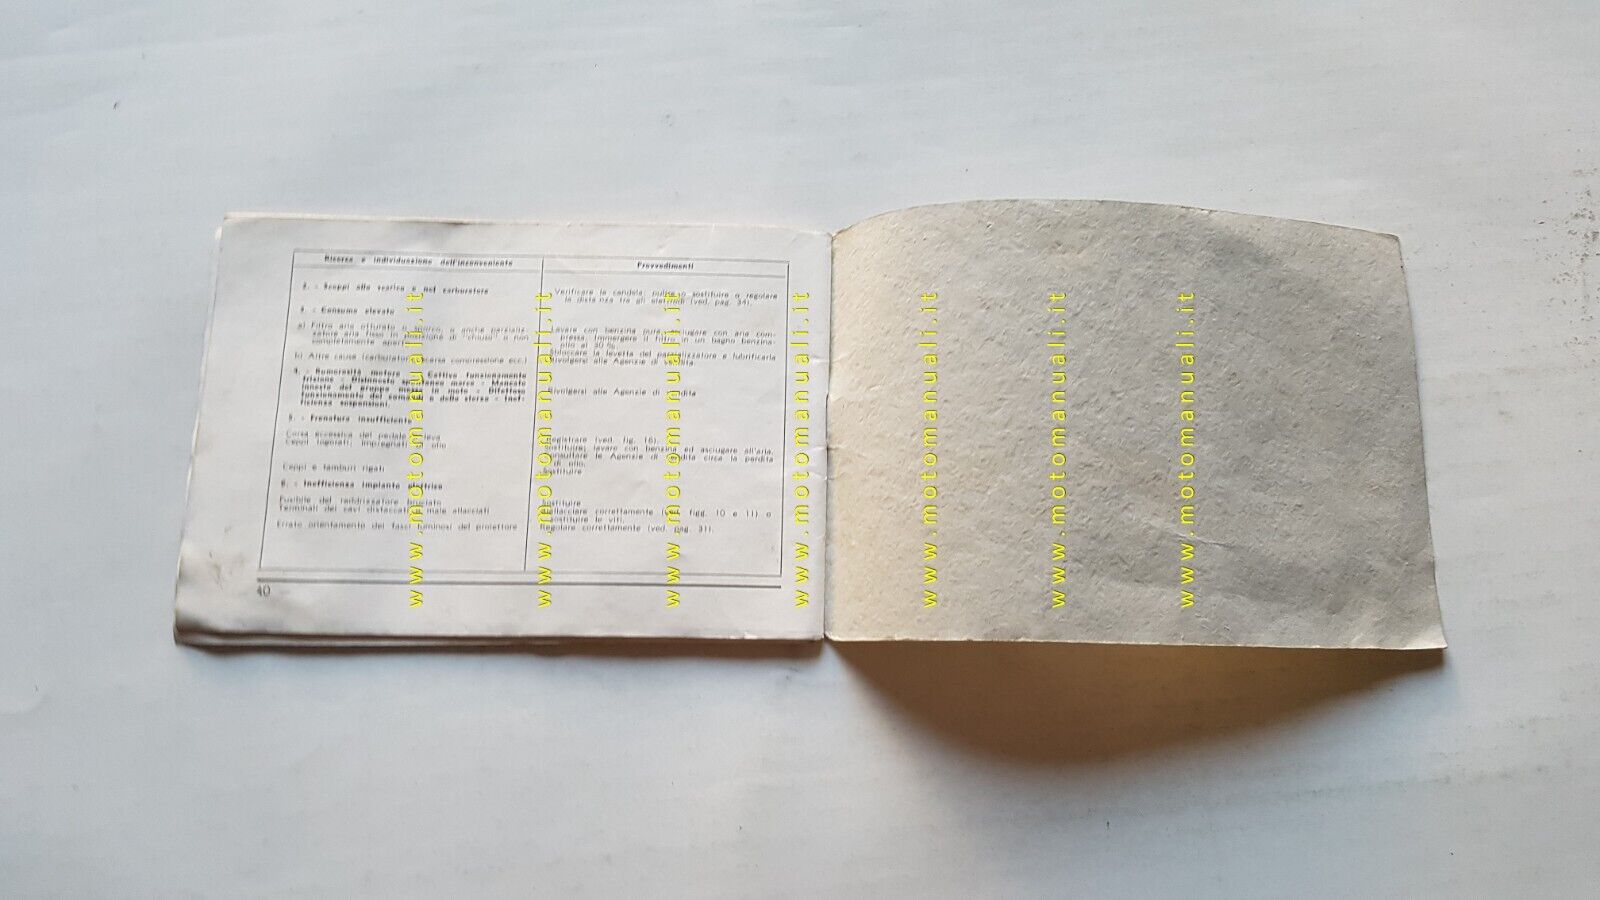 Ricerca e individuazione dell'inconveniente
Provvedimenti
2. - Scoppi alla scarica e nel carburatore
Verificare la candela: pulire o sostituire o regolare
la distanza tra gli elettrodi (ved. pag. 34).
3. - Consumo elevato
a) Filtro aria otturato o sporco, o anche parzializ-
zatore aria fisso in posizione di "chiuso" o non
completamente aperto
Lavare con benzina pura, asciugare con aria com-
pressa. Immergere il filtro in un bagno benzina-
olio al 30%.
Sbloccare la levetta del parzializzatore e lubrificarla
b) Altre cause (carburatore, scarsa compressione ecc.)
Rivolgersi alle Agenzie di vendita.
4. - Rumorosità motore - Cattivo funzionamento
frizione - Disinnesto spontaneo marce - Mancato
innesto del gruppo motore in moto - Difettoso
funzionamento del cambio e dello sterzo - Inef-
ficienza sospensioni.
Rivolgersi alle Agenzie di vendita
5. - Frenatura insufficiente
Corsa eccessiva del pedale o leva
Ceppi logorati; impregnati di olio
Registrare (ved. fig. 16).
Sostituire; lavare con benzina ed asciugare all'aria.
Consultare le Agenzie di vendita circa la perdita
di olio.
Ceppi e tamburi rigati
Sostituire
6. - Inefficienza impianto elettrico
Fusibile del raddrizzatore bruciato
Sostituire
Terminali dei cavi distaccati o male allacciati
Riallacciare correttamente (ved. figg. 10 e 11) o
sostituire le viti.
Errato orientamento dei fasci luminosi del proiettore
Regolare correttamente (ved. pag. 31).
40
www.motomanuali.it
www.motomanuali.it
www.motomanuali.it
www.motomanuali.it
www.motomanuali.it
www.motomanuali.it
www.motomanuali.it